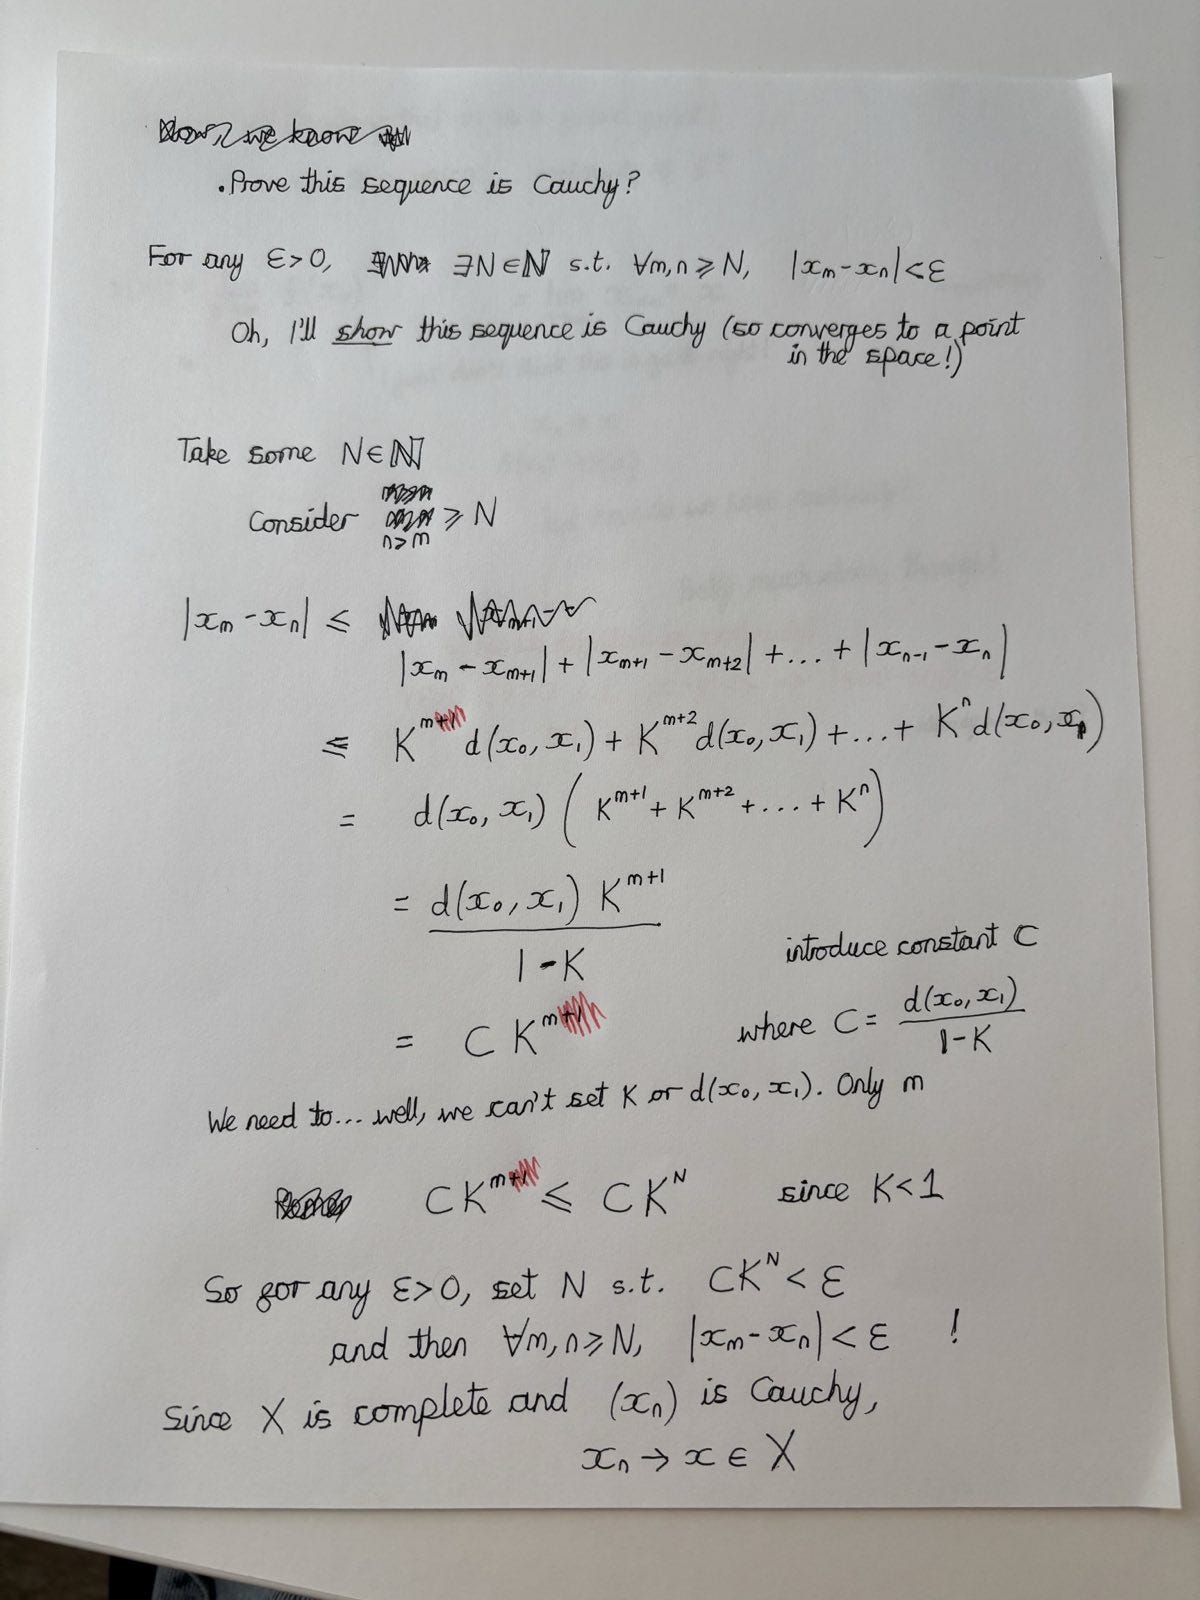 Now, we know
. Prove this sequence is Cauchy?
For any ε>0, ∃N∈ℕ s.t. ∀m,n ⩾ N, |xₘ-xₙ|<ε
Oh, I'll show this sequence is Cauchy (so converges to a point
in the space!)
Take some N∈ℕ
Consider n>m ⩾ N
|xₘ-xₙ| ≤
|xₘ - xₘ₊₁| + |xₘ₊₁ - xₘ₊₂| +...+ |xₙ₋₁ - xₙ|
≤ K^m d(x₀, x₁) + K^{m+2} d(x₀, x₁) +...+ K^n d(x₀, x₁)
= d(x₀, x₁) ( K^{m+1} + K^{m+2} + ... + K^n )
= d(x₀, x₁) K^{m+1} / 1-K
introduce constant C
= C K^m where C = d(x₀, x₁) / 1-K
We need to... well, we can't set K or d(x₀, x₁). Only m
CK^m ≤ CK^N since K<1
So for any ε>0, set N s.t. CK^N < ε
and then ∀m,n⩾N, |xₘ-xₙ| < ε !
Since X is complete and (xₙ) is Cauchy,
xₙ → x ∈ X